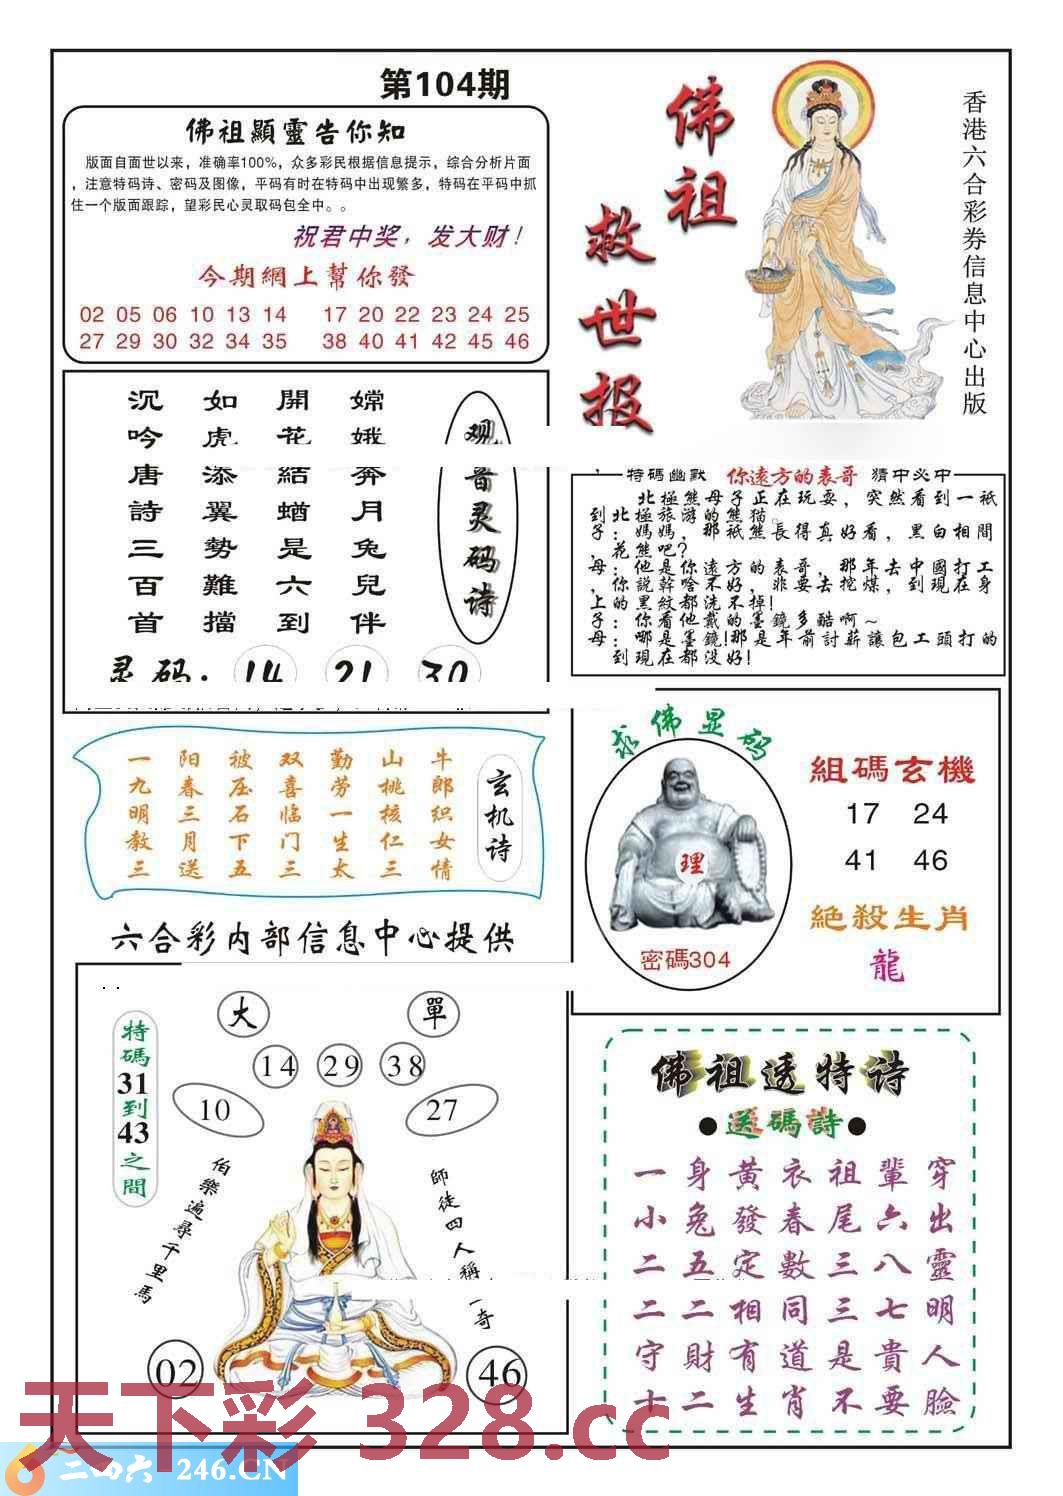 第104期
佛祖顯靈告你知
版面自面世以来，准确率100%，众多彩民根据信息提示，综合分析片面
，注意特码诗、密码及图像，平码有时在特码中出现繁多，特码在平码中抓
住一个版面跟踪，望彩民心灵取码包全中。。
祝君中奖，发大财！
今期網上幫你發
02 05 06 10 13 14 17 20 22 23 24 25
27 29 30 32 34 35 38 40 41 42 45 46
佛祖
救世报
香港六合彩券信息中心出版
观音灵码诗
嫦娥奔月兔兒伴
開花結蝤是六到
如虎添翼勢難擋
沉吟唐詩三百首
灵码：14 21 30
特碼幽默 你遠方的表哥 猜中必中
北極熊母子正在玩耍，突然看到一祇
到北極旅游的熊猫。
子：媽媽，那祇熊長得真好看，黑白相間
，花熊吧？
母：他是你遠方的表哥，那年去中國打工
，你說幹啥不好，非要去挖煤，到現在身
上的黑紋都洗不掉！
子：你看他戴的墨鏡多酷啊～
母：哪是墨鏡！那是年前討薪讓包工頭打的
到現在都没好！
玄机诗
牛郎织女情
山桃核仁三
勤劳一生太
双喜临门三
被压石下五
阳春三月送
一九明教三
求佛显码
理
密碼304
組碼玄機
17 24
41 46
絶殺生肖
龍
六合彩内部信息中心提供
特碼31到43之間
大 單
14 29 38
10 27
伯樂遍尋千里馬
師徒四人稱一奇
02 46
佛祖透特诗
●送碼詩●
一身黃衣祖輩穿
小兔發春尾六出
二五定數三八靈
二二相同三七明
守財有道是貴人
十二生肖不要臉
天下彩 328.cc
二四六 246.CN